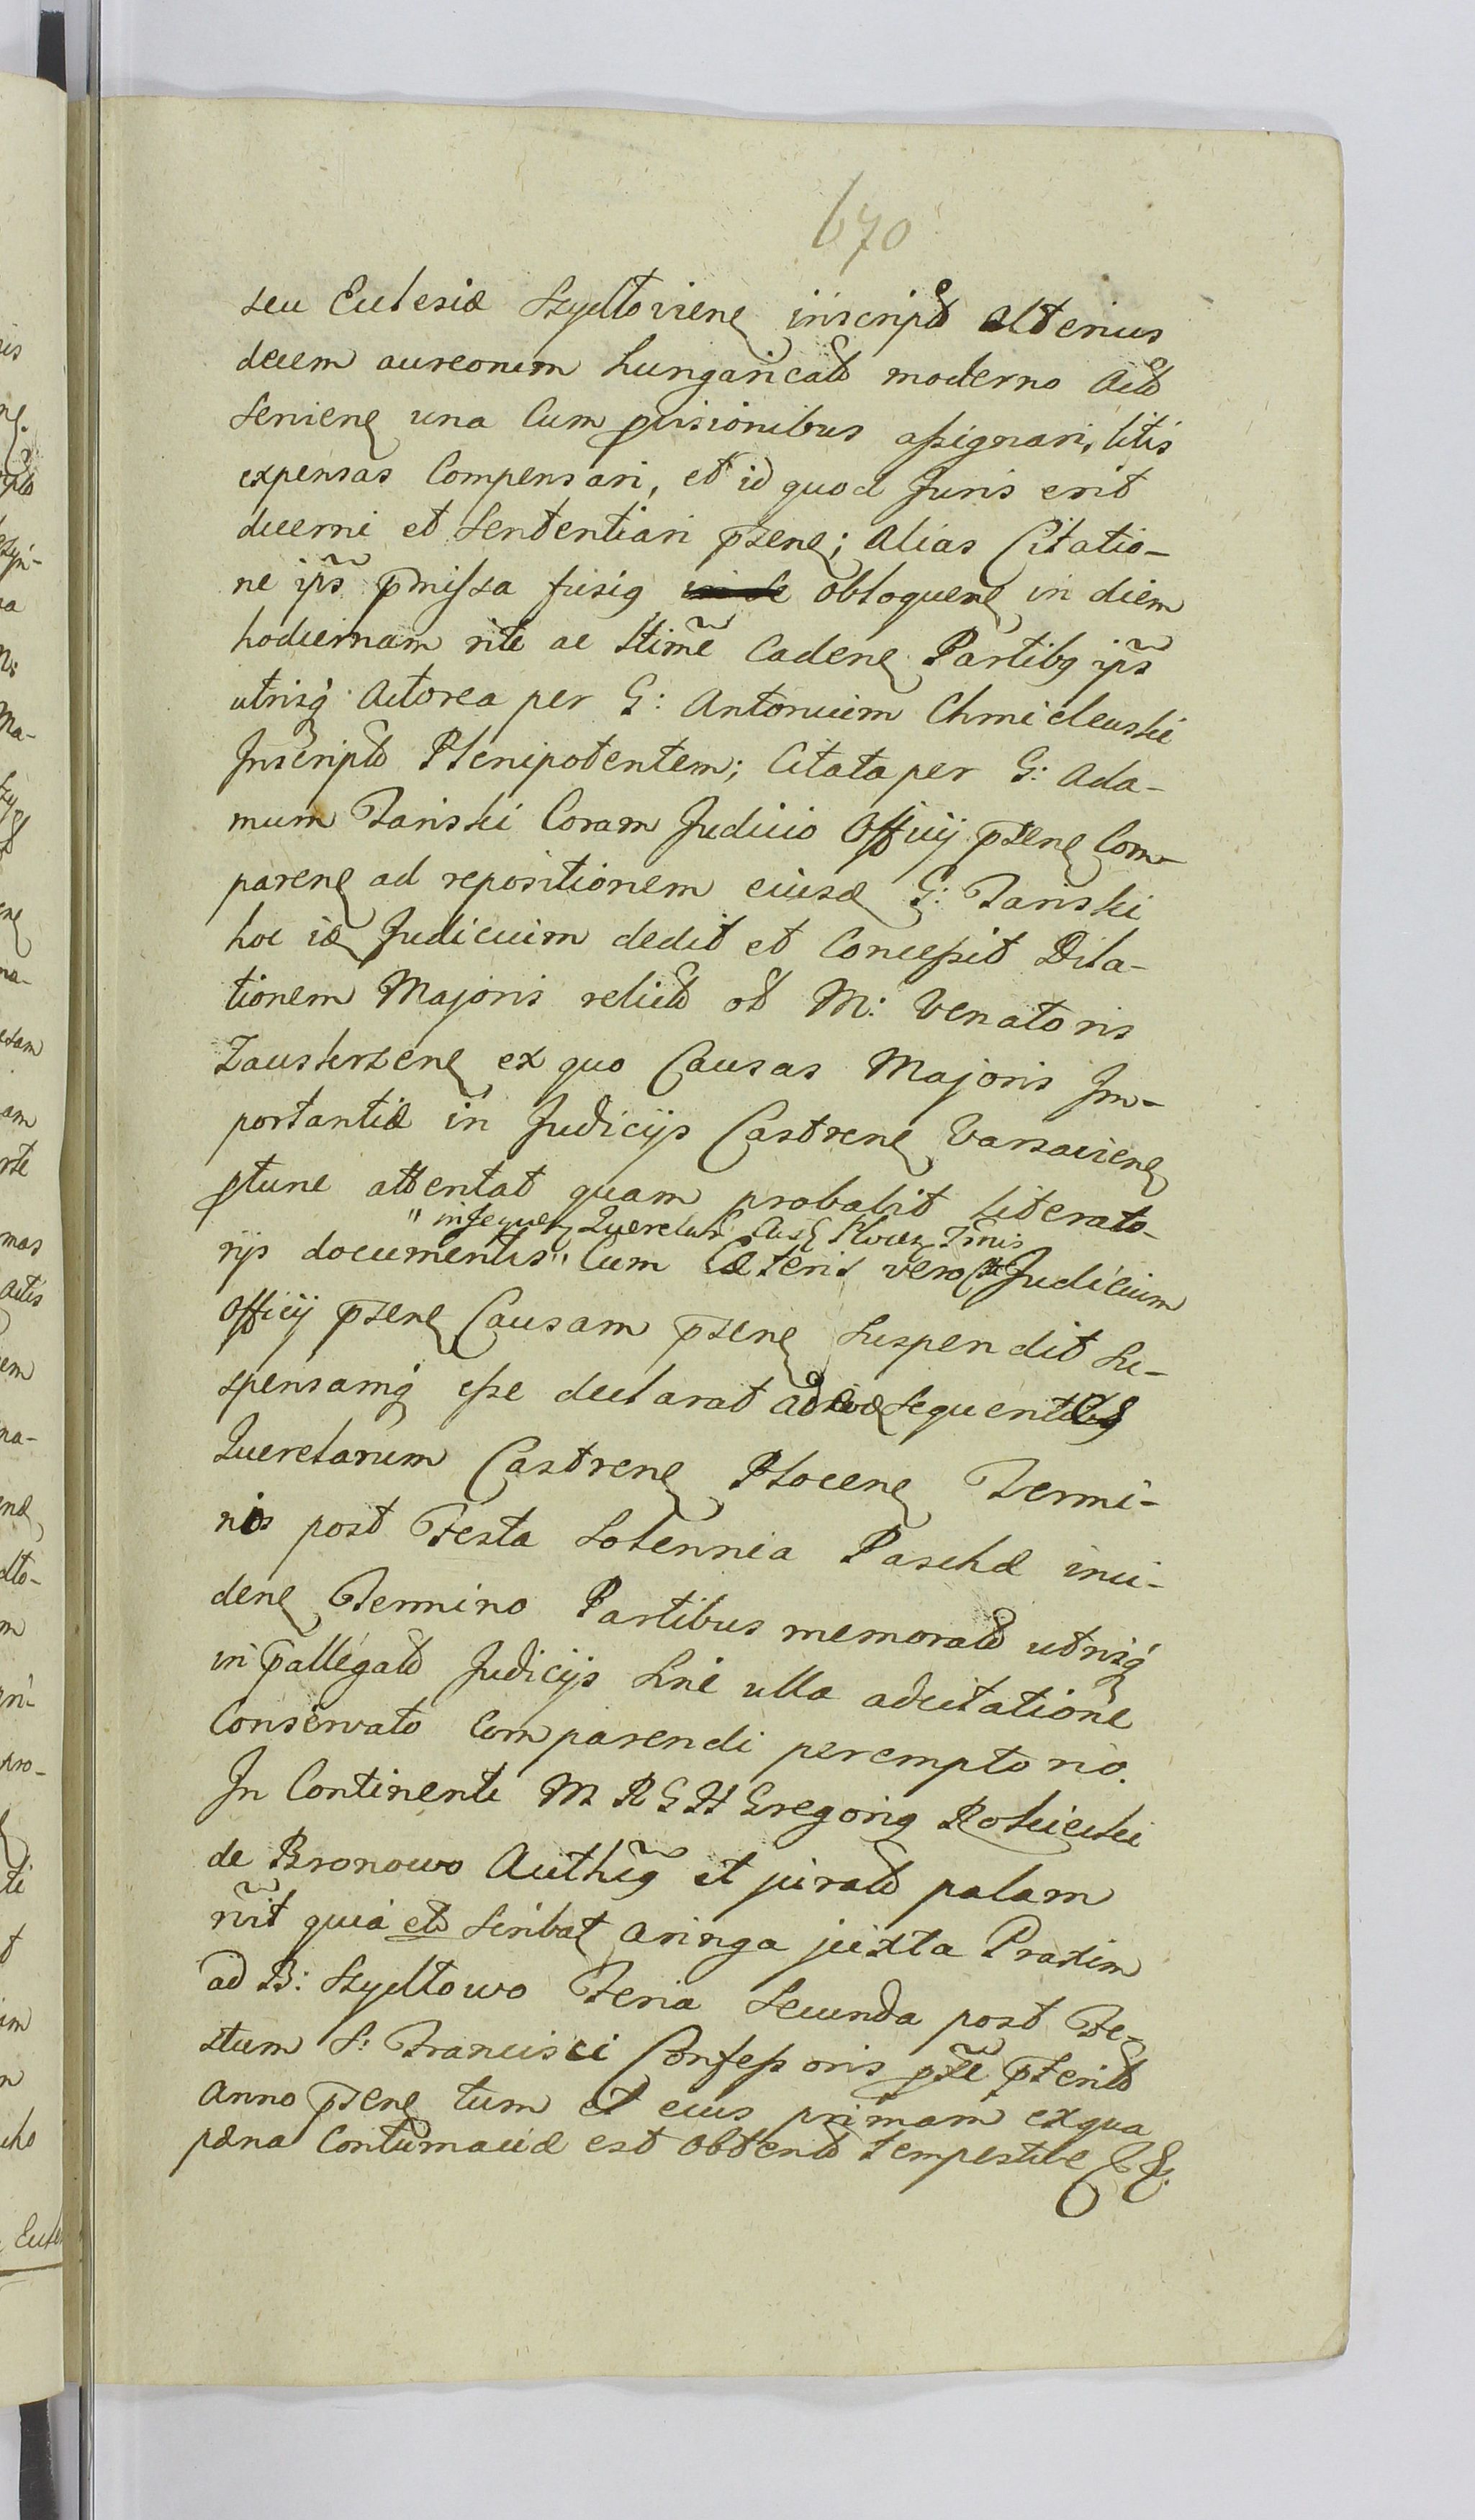 670
seu Eccłesiæ Szydłovien inscript alterius
decem aureorum hungaricalt moderno Act
Senien una Cum provisionibus assignari, litis
expensas Compensari, et id quod Juris erit
decerni et Sententiari pzen; alias Citatio-
ne ips pmissa fusiq obloquen in diem
hodiernam rite ac ltime Caden Partibq ips
utrisq Actorea per G: Antonium Chmielewski
Inscript Plenipotentem; Citata per G: Ada-
mum Tański Coram Judicio Officij pzen Com-
paren ad repositionem eiusd G: Tański
hoc id Judicium dedit et Concessit Dila-
tionem Majoris relict ob M: Venatoris
Zauskrzen ex quo Causas Majoris Im-
portantiæ in Judicijs Castren Varsavien
ptunc attentat quam probabit literato-
" in sequen Querelar Cas Płocen Tmis
rijs documentis" Cum Cæteris vero Judicium
Officij pzen Causam pzen Suspendit Su-
spensamq esse declarat ad sequent
Querelarum Castren Płocen Termi-
nis post Festa Solennia Paschæ inci-
den Termino Partibus memorat utrisq
in pallegat Judicijs Sine ulla adcitatione
Conservato Comparendi peremptorio.
In Continenti M R G H Gregoriq Rokicki
de Bronowo Autheq et jurat palam
rvit quia Scribat aringa juxta Praxim
ad B: Szydłowo Feria Secunda post Fe-
stum S: Francisci Confessoris pterit
Anno pzen tum et eius primam ex qua
pæna Contumaciæ est obtent tempestive